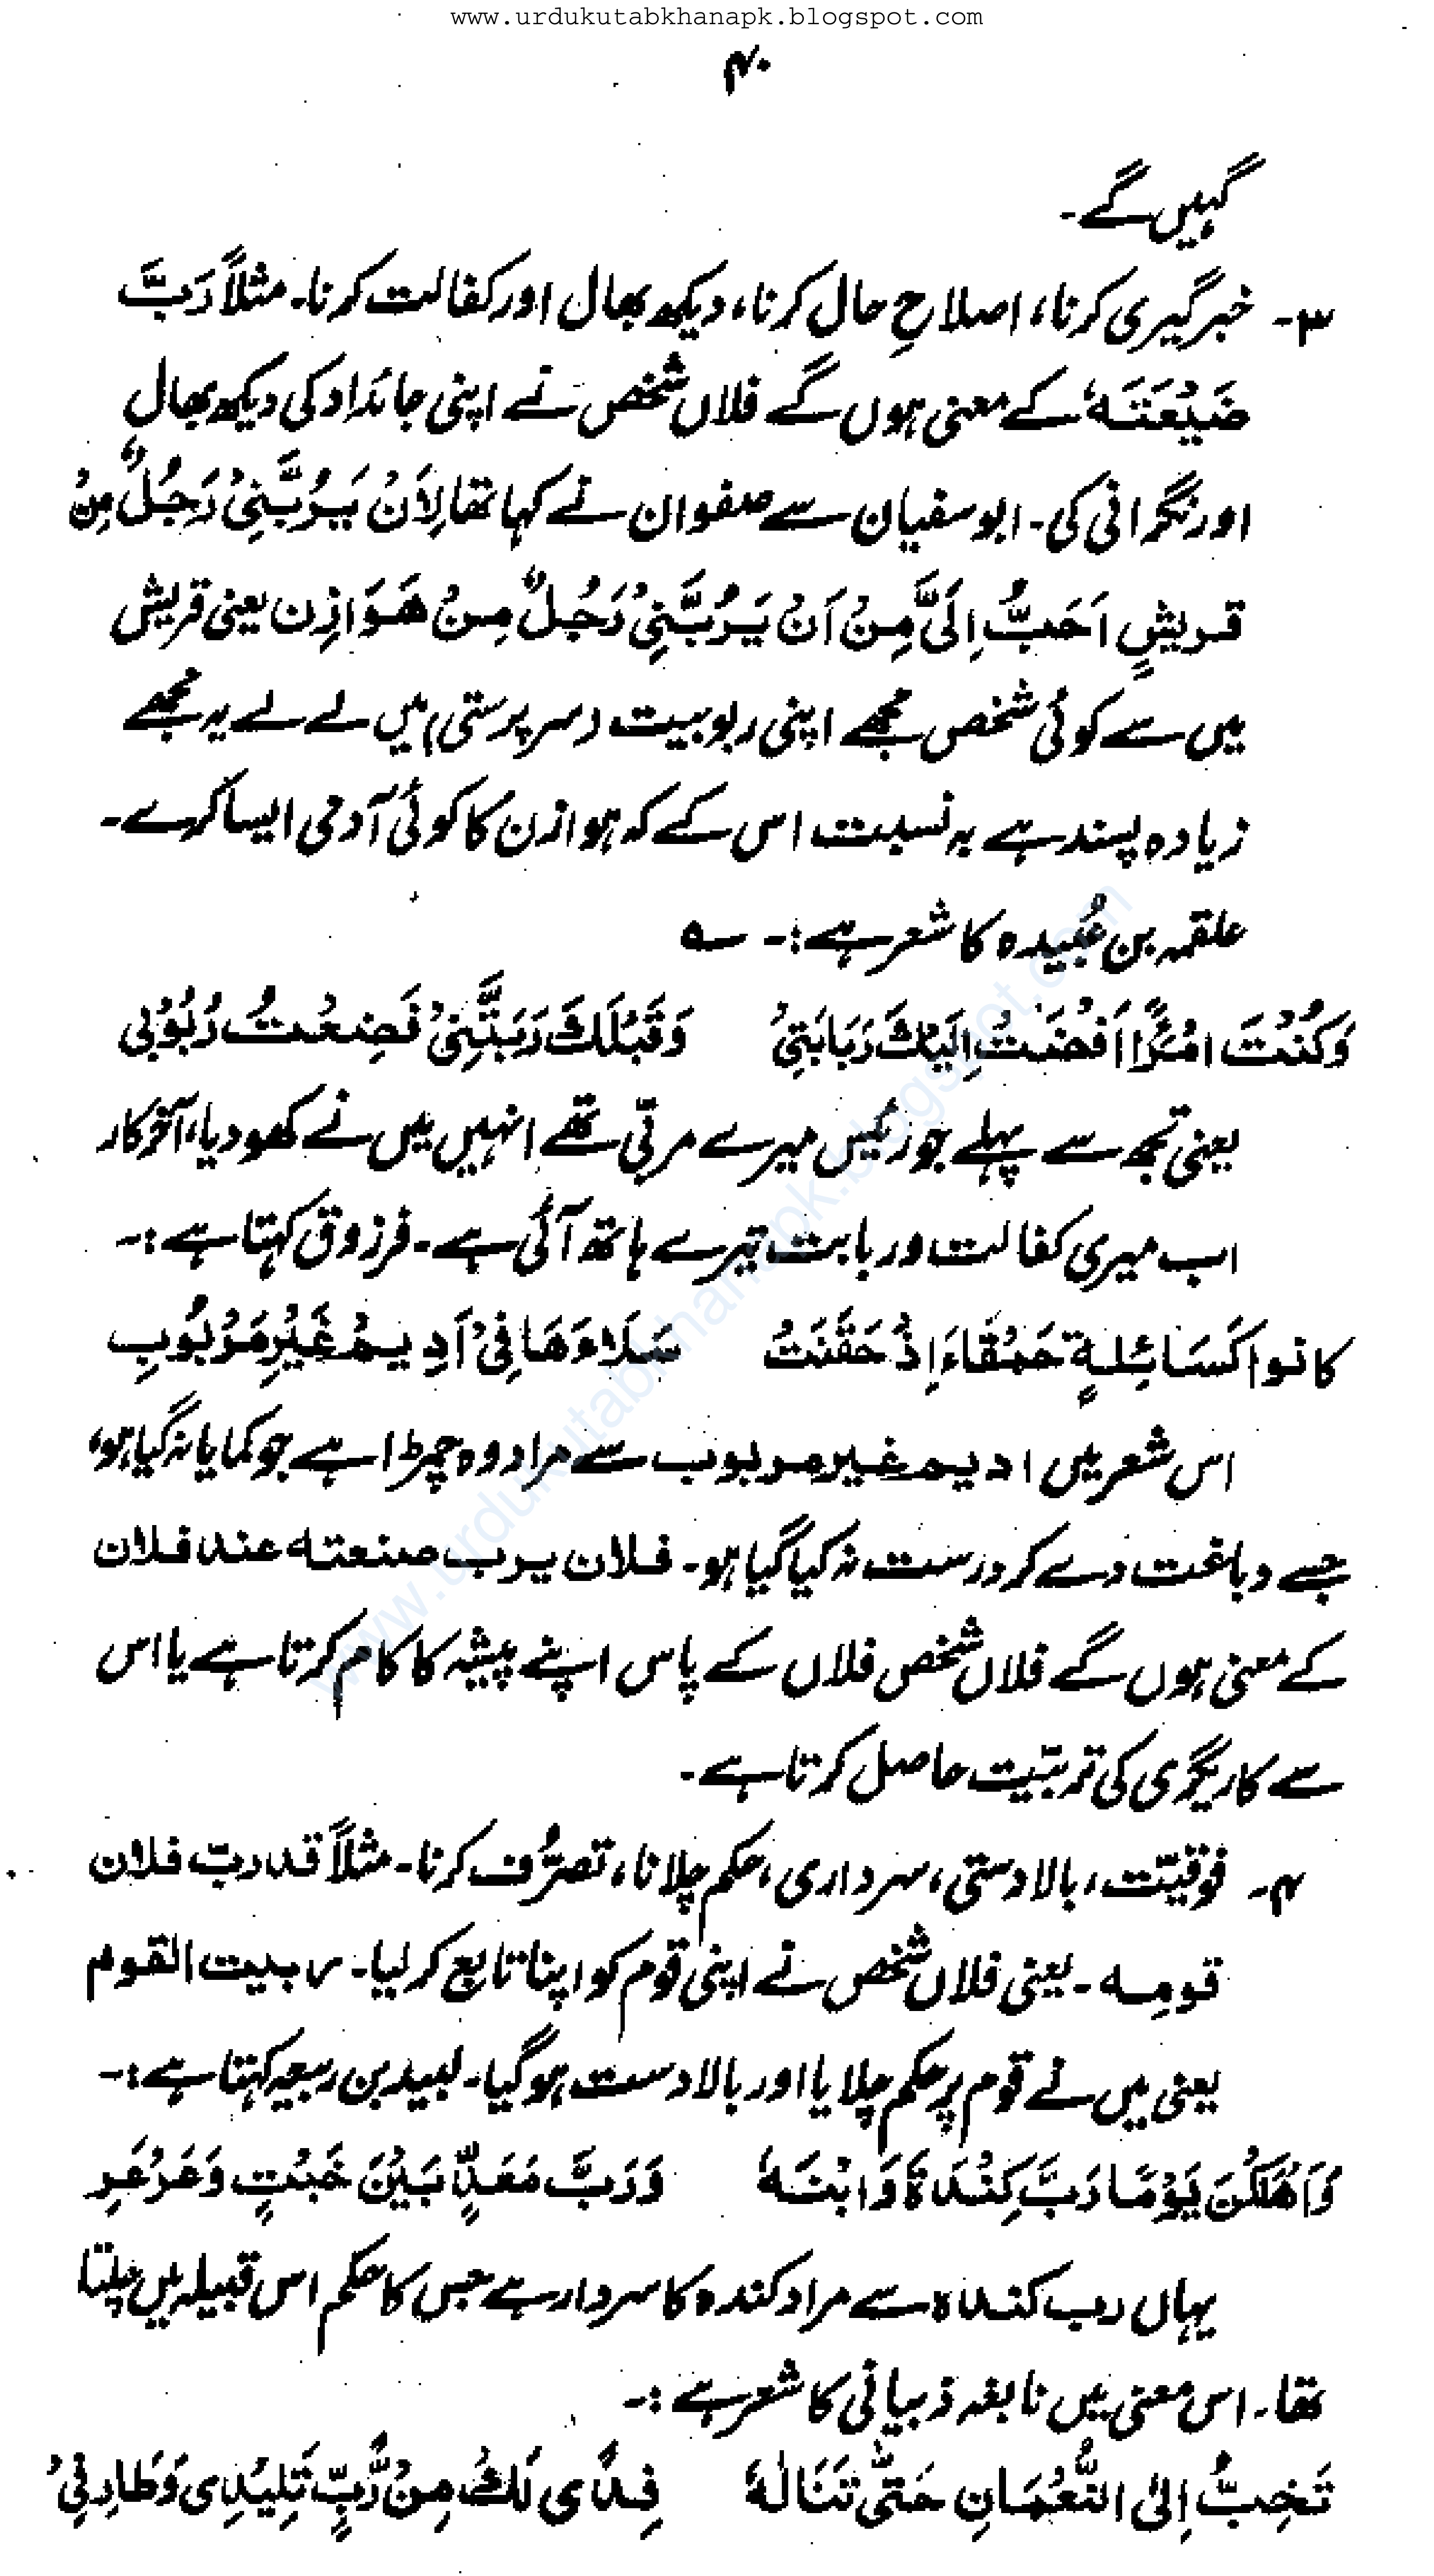 www.urdukutabkhanapk.blogspot.com
۴۰
گہیں گے۔
۳۔ خبرگیری کرنا، اصلاحِ حال کرنا، دیکھ بھال اور کفالت کرنا۔ مثلاً رَبَّ
ضَیْعَتَہٗ کے معنی ہوں گے فلاں شخص نے اپنی جائداد کی دیکھ بھال
اور نگرانی کی۔ ابو سفیان سے صفوان نے کہا تھا لِاَنْ یَرُبَّنِیْ رَجُلٌ مِنْ
قریشٍ اَحَبُّ اِلَیَّ مِنْ اَنْ یَرُبَّنِیْ رَجُلٌ مِنْ ھَوَازِن یعنی قریش
میں سے کوئی شخص مجھے اپنی ربوبیت (سرپرستی) میں لے لے یہ مجھے
زیادہ پسند ہے بہ نسبت اس کے کہ ہوازن کا کوئی آدمی ایسا کرے۔
علقمہ بن عُبیدہ کا شعر ہے :۔ ؎
وَکُنْتَ امْرَأً اَفْضَتْ اِلَیْكَ رَبَابَتِیْ وَقَبْلَكَ رَبَتَّنِیْ فَضِعْتُ رُبُوْبِی
یعنی تجھ سے پہلے جو رئیس میرے مربّی تھے انہیں میں نے کھو دیا، آخر کار
اب میری کفالت ور بابت تیرے ہاتھ آئی ہے۔ فرزوق کہتا ہے :۔
کانوا کَسَائِلةٍ حَمْقَاءَ اِذْ حَقَنَتْ سَلَاءَھَا فِیْ اَدِیْمٍ غَیْرِ مَرْبُوبِ
اس شعر میں ادیم غیر مربوب سے مراد وہ چمڑا ہے جو کمایا نہ گیا ہو،
جسے دباغت دے کر درست نہ کیا گیا ہو۔ فلان یرب صنعتہ عند فلان
کے معنی ہوں گے فلاں شخص فلاں کے پاس اپنے پیشہ کا کام کرتا ہے یا اس
سے کاریگری کی تربیّت حاصل کرتا ہے۔
۴۔ فوقیّت، بالادستی، سرداری، حکم چلانا، تصرُّف کرنا۔ مثلاً قد ربّ فلان
قومِہ۔ یعنی فلاں شخص نے اپنی قوم کو اپنا تابع کر لیا۔ ربیت القوم
یعنی میں نے قوم پر حکم چلایا اور بالادست ہوگیا۔ لبید بن ربیعہ کہتا ہے :۔
وَاَھْلَکْنَ یَوْمًا رَبَّ کِنْدَةَ وَابْنَہٗ وَرَبَّ مَعَدٍّ بَیْنَ خَبْتٍ وَعَرْعَرِ
یہاں رب کندہ سے مراد کندہ کا سردار ہے جس کا حکم اس قبیلہ میں چلتا
تھا۔ اس معنی میں نابغہ ذبیانی کا شعر ہے :۔
تَخِبُّ اِلیٰ النُّعْمَانِ حَتّٰی تَنَالَہٗ فِدًی لَكَ مِنْ رَّبٍّ تَلِیْدِی وَطَارِفِیْ